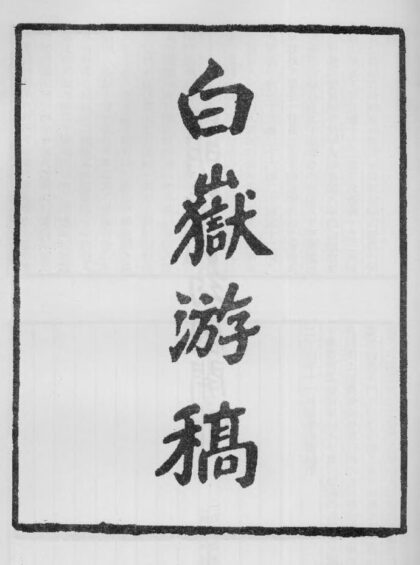 白嶽游稿